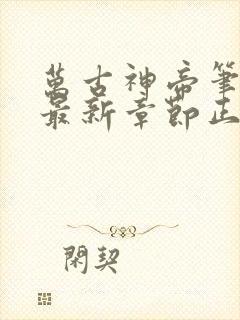 萬古神帝筆
最新章節正
閑契